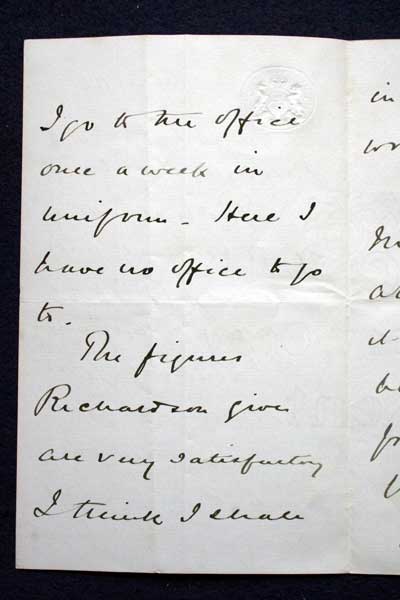 I go to the office
once a week in
uniform - Here I
have no office to go
to.
The figures
Richardson gives
are very satisfactory
I think I shall
in